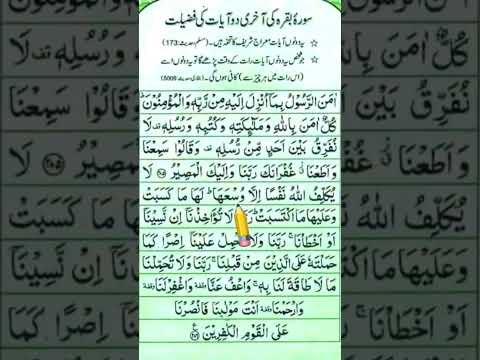 سورۂ بقرہ کی آخری دو آیات کی فضیلت
★ یہ دونوں آیات معراج شریف کا تحفہ ہیں۔ (مسلم، حدیث:173)
★ جو شخص یہ دونوں آیات رات کے وقت پڑھے گا تو یہ دونوں اسے
(اس رات میں ہر چیز سے) کافی ہوں گی۔ (بخاری، حدیث: 5008)
اٰمَنَ الرَّسُوْلُ بِمَاۤ اُنْزِلَ اِلَیْهِ مِنْ رَّبِّهٖ وَ الْمُؤْمِنُوْنَؕ
كُلٌّ اٰمَنَ بِاللّٰهِ وَ مَلٰٓىٕكَتِهٖ وَ كُتُبِهٖ وَ رُسُلِهٖ۫ لَا
نُفَرِّقُ بَیْنَ اَحَدٍ مِّنْ رُّسُلِهٖ۫ وَ قَالُوْا سَمِعْنَا
وَ اَطَعْنَا ٘ۗ غُفْرَانَكَ رَبَّنَا وَ اِلَیْكَ الْمَصِیْرُ ﴿۲۸۵﴾ لَا
یُكَلِّفُ اللّٰهُ نَفْسًا اِلَّا وُسْعَهَاؕ لَهَا مَا كَسَبَتْ
وَ عَلَیْهَا مَا اكْتَسَبَتْؕ لَا تُؤَاخِذْنَاۤ اِنْ نَّسِیْنَاۤ
اَوْ اَخْطَاْنَاۚ رَبَّنَا وَ لَا عَلَیْنَاۤ اِصْرًا كَمَا
حَمَلْتَهٗ عَلَى الَّذِیْنَ مِنْ قَبْلِنَاۚ رَبَّنَا وَ لَا تُحَمِّلْنَا
مَا لَا طَاقَةَ لَنَا بِهٖۚ وَ اعْفُ عَنَّاٙ وَ اغْفِرْ لَنَاٙ
وَ ارْحَمْنَاٙ اَنْتَ مَوْلٰىنَا فَانْصُرْنَا
عَلَى الْقَوْمِ الْكٰفِرِیْنَ ﴿۲۸۶﴾